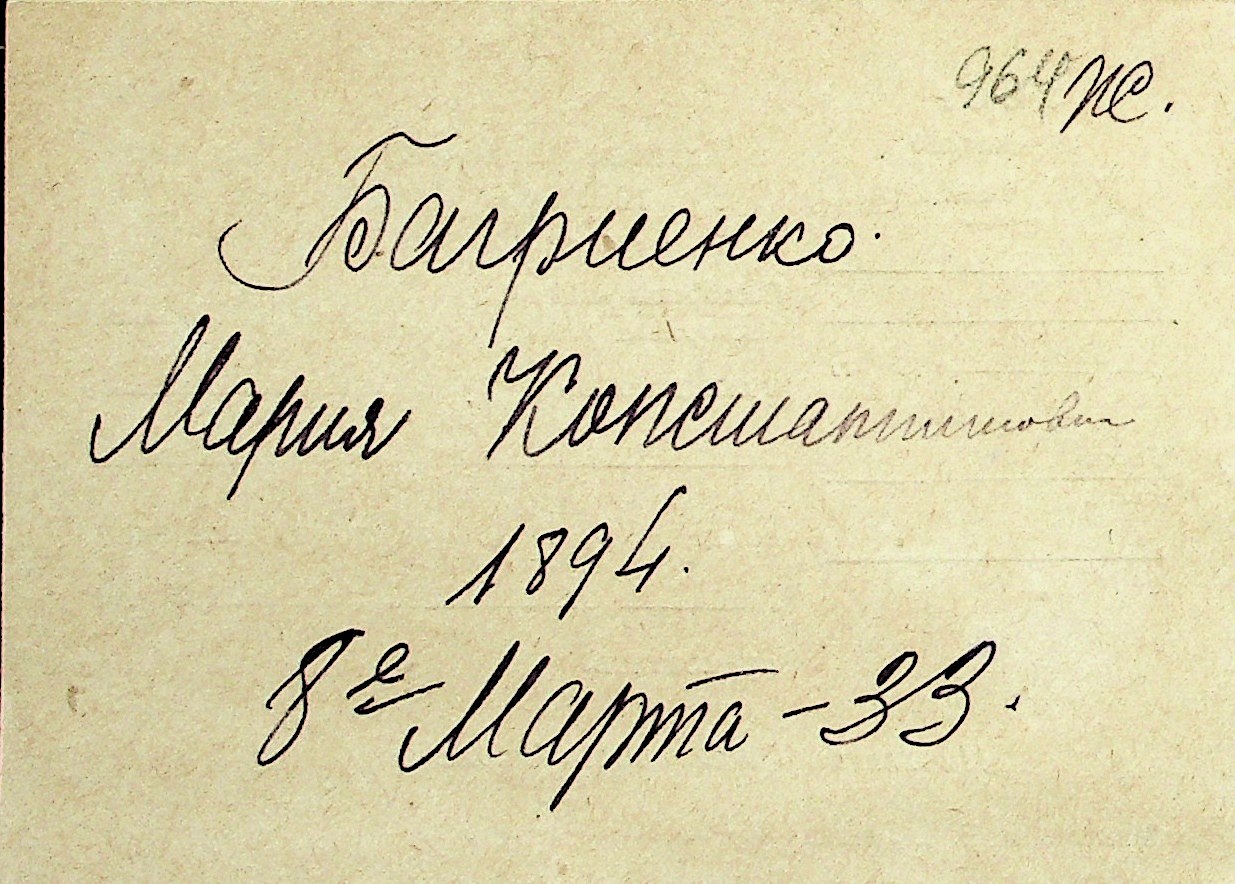 964 же.
Багриенко.
Мария Константиновн
1894.
8е Марта - 33.